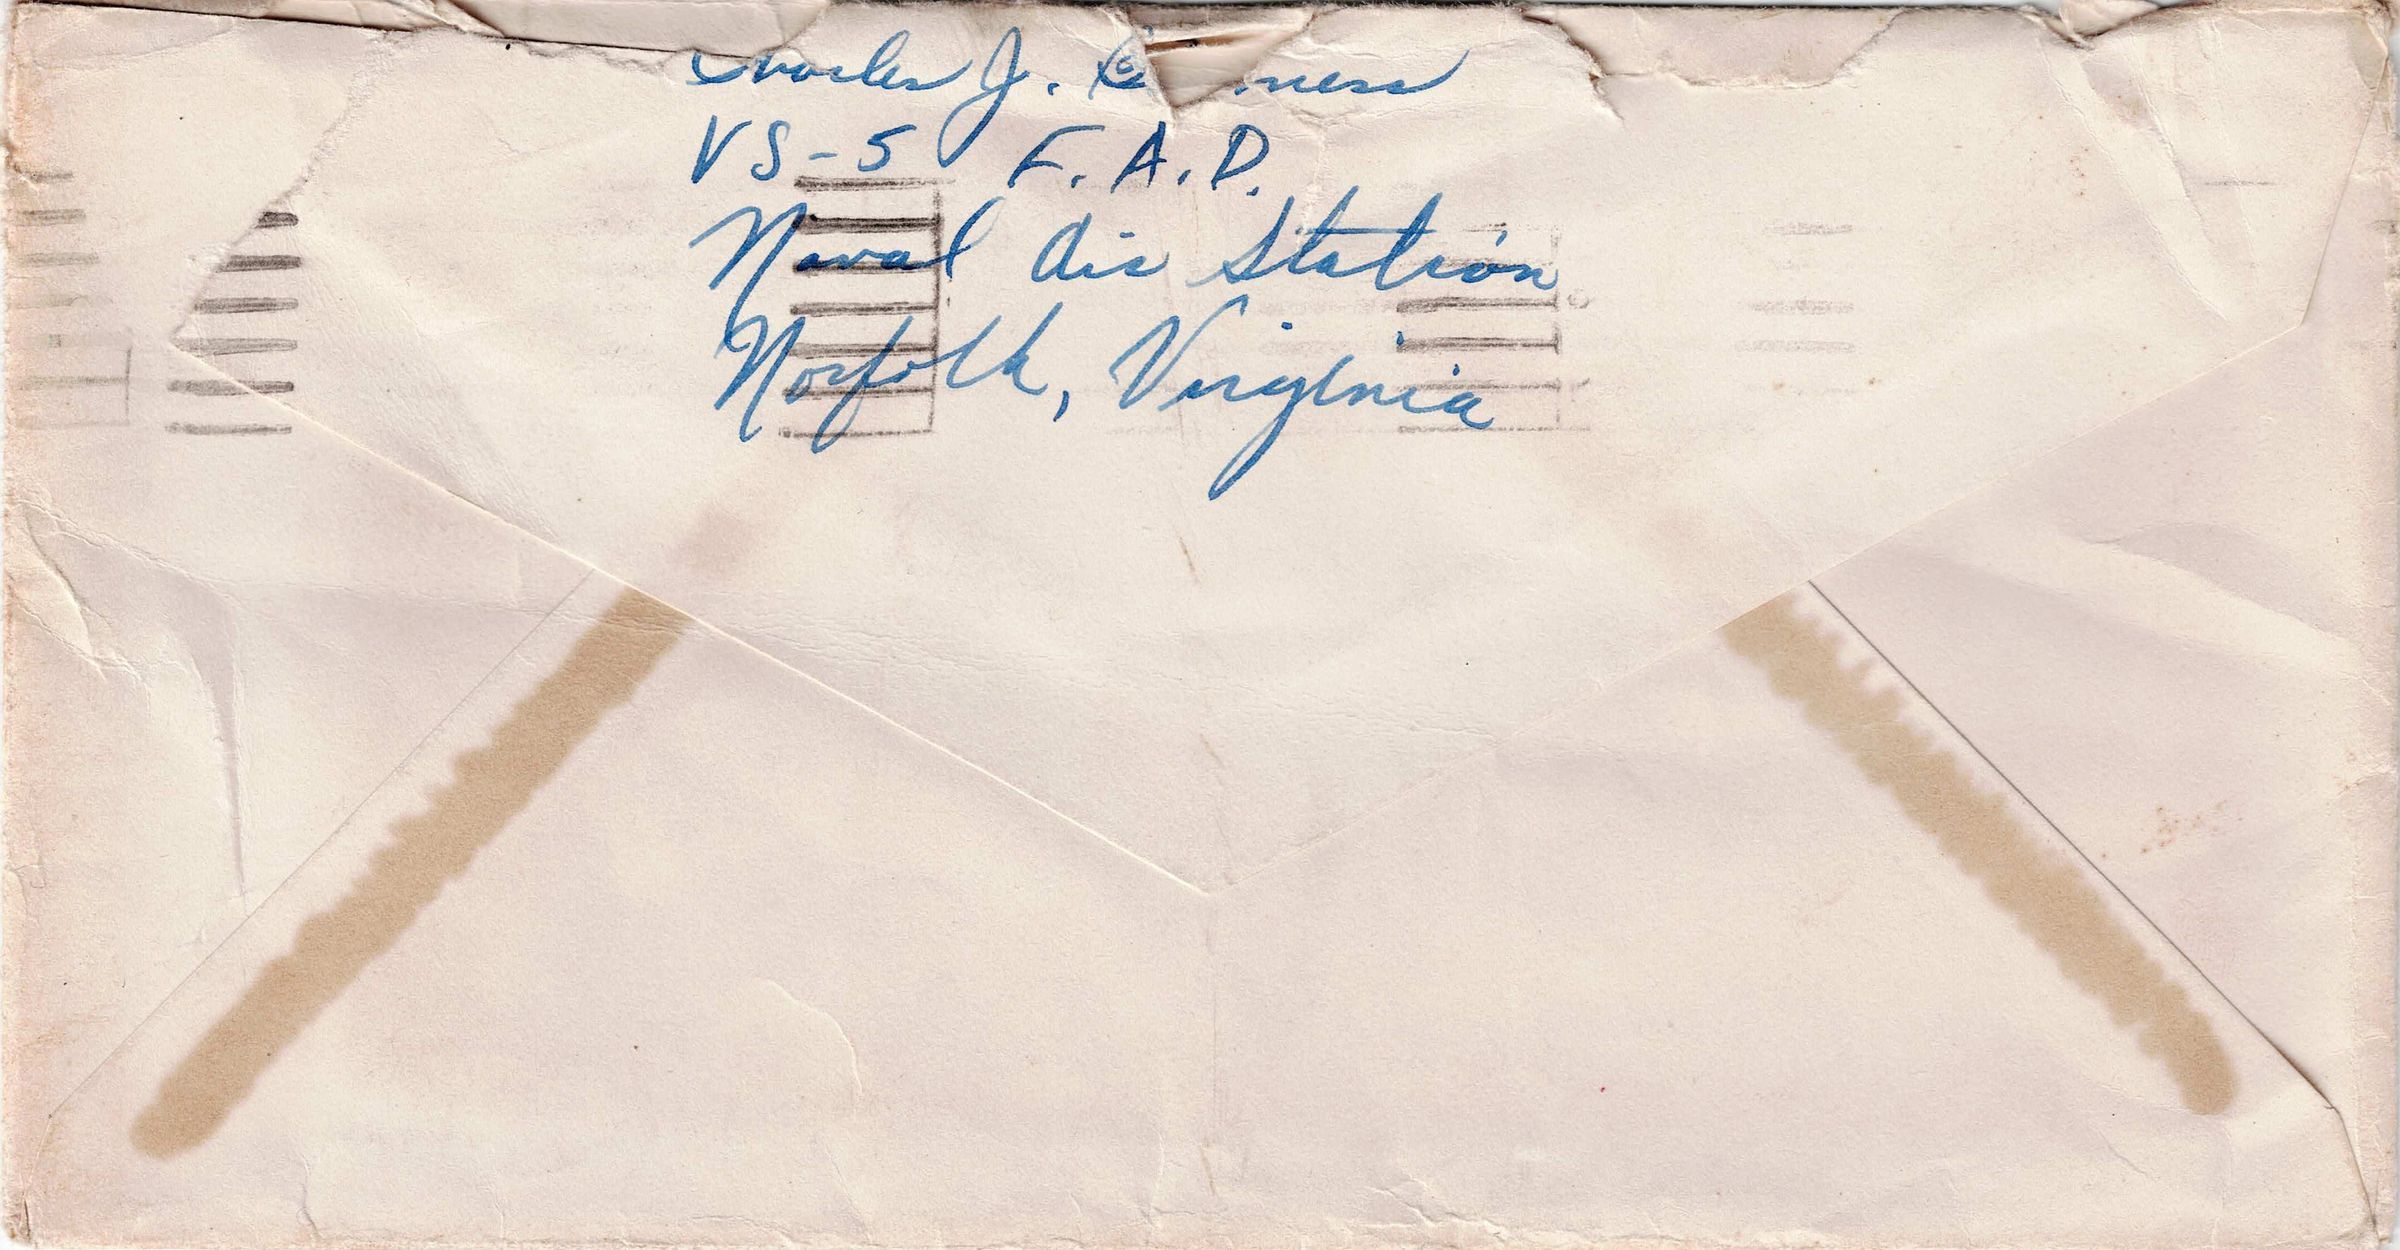 Charles J.
VS-5 F.A.D.
Naval Air Station
Norfolk, Virginia